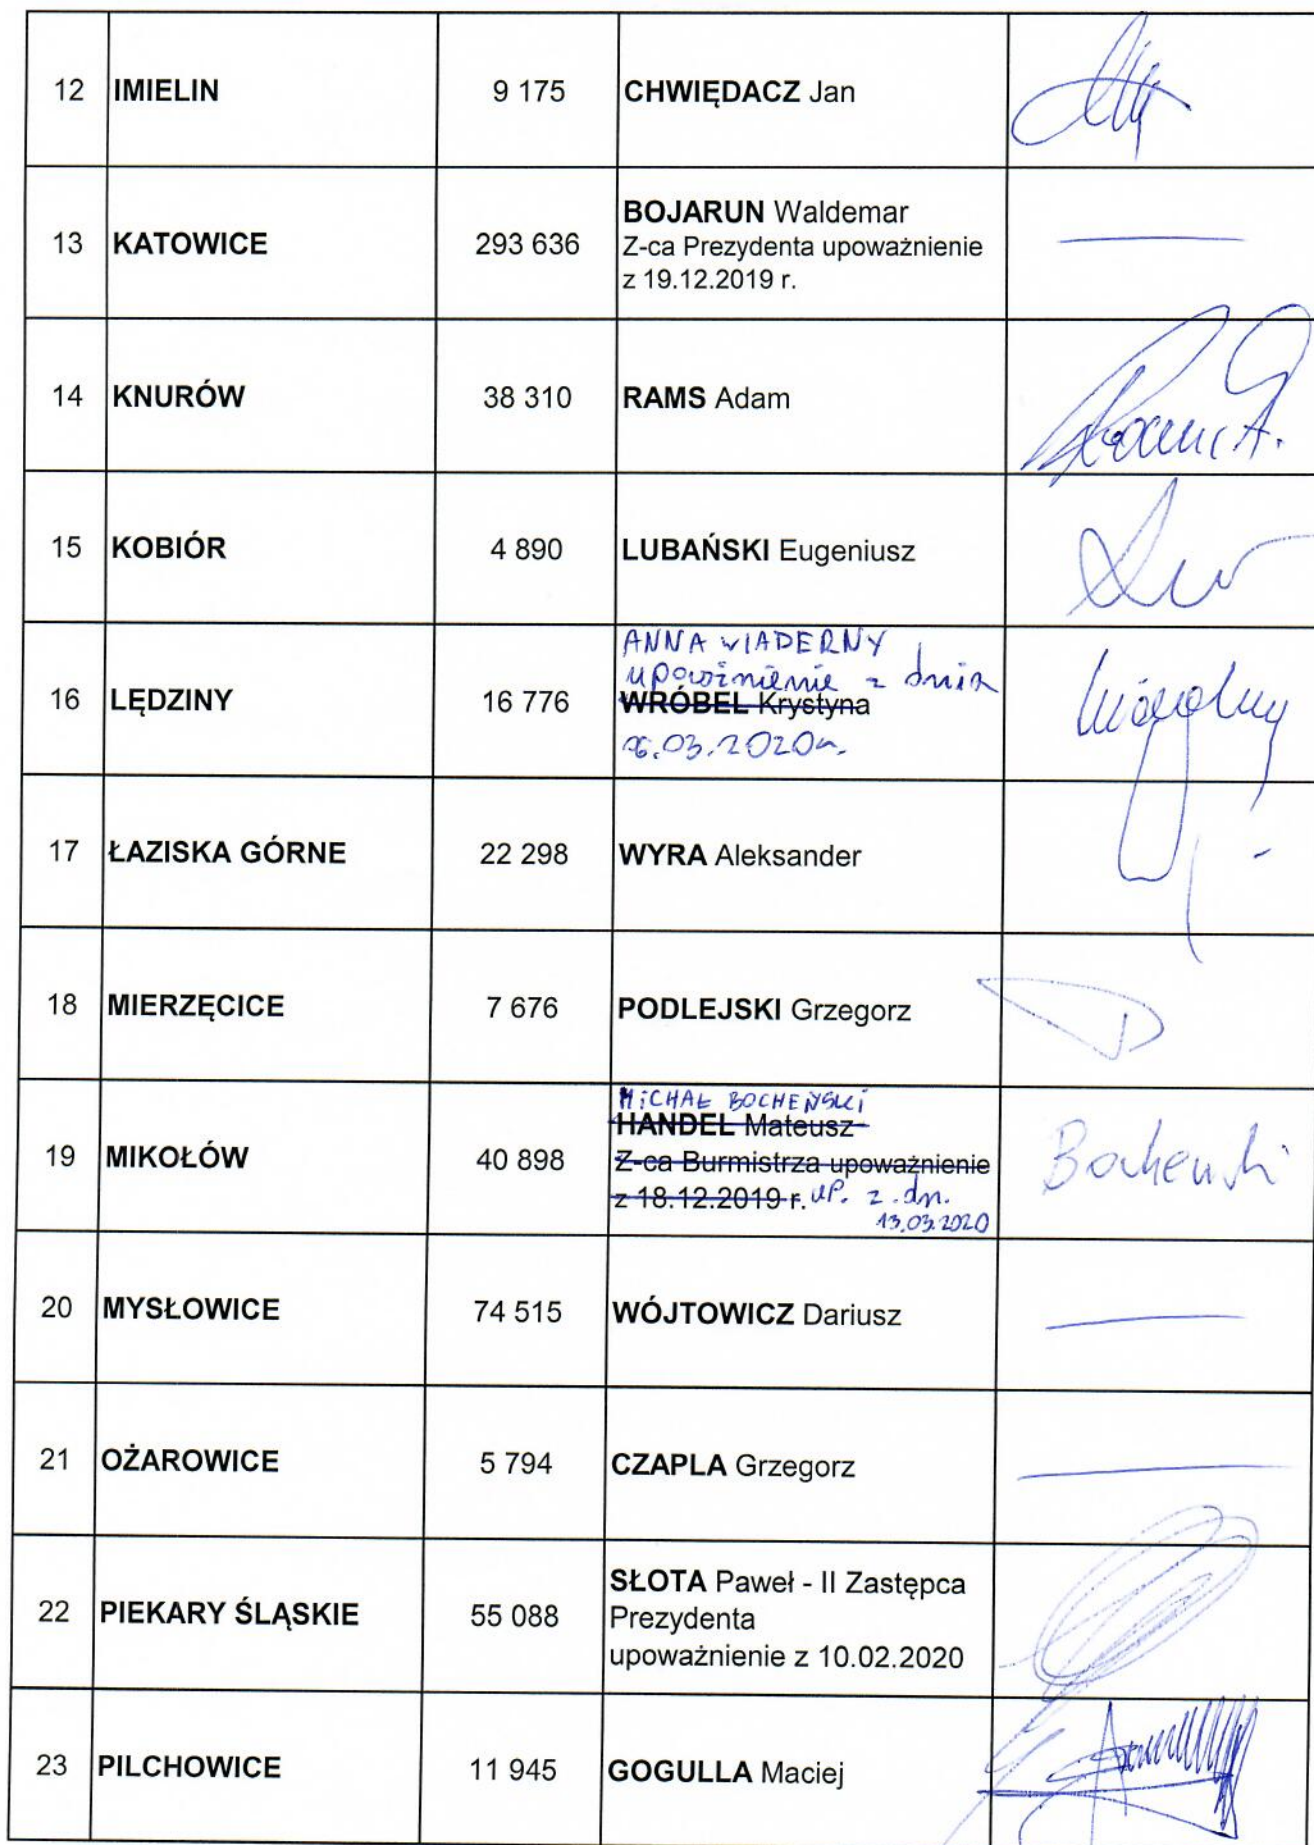 12 IMIELIN 9 175 CHWIĘDACZ Jan
13 KATOWICE 293 636 BOJARUN Waldemar
Z-ca Prezydenta upoważnienie
z 19.12.2019 r.
14 KNURÓW 38 310 RAMS Adam
15 KOBIÓR 4 890 LUBAŃSKI Eugeniusz
ANNA WIADERNY
upoważnienie z dnia
16 LĘDZINY 16 776 WRÓBEL Krystyna
03.2020r.
17 ŁAZISKA GÓRNE 22 298 WYRA Aleksander
18 MIERZĘCICE 7 676 PODLEJSKI Grzegorz
MICHAŁ BOCHEŃSKI
HANDEL Mateusz
19 MIKOŁÓW 40 898 Z-ca Burmistrza upoważnienie
z 18.12.2019 r. up. z.dn.
13.03.2020
20 MYSŁOWICE 74 515 WÓJTOWICZ Dariusz
21 OŻAROWICE 5 794 CZAPLA Grzegorz
SŁOTA Paweł - II Zastępca
22 PIEKARY ŚLĄSKIE 55 088 Prezydenta
upoważnienie z 10.02.2020
23 PILCHOWICE 11 945 GOGULLA Maciej